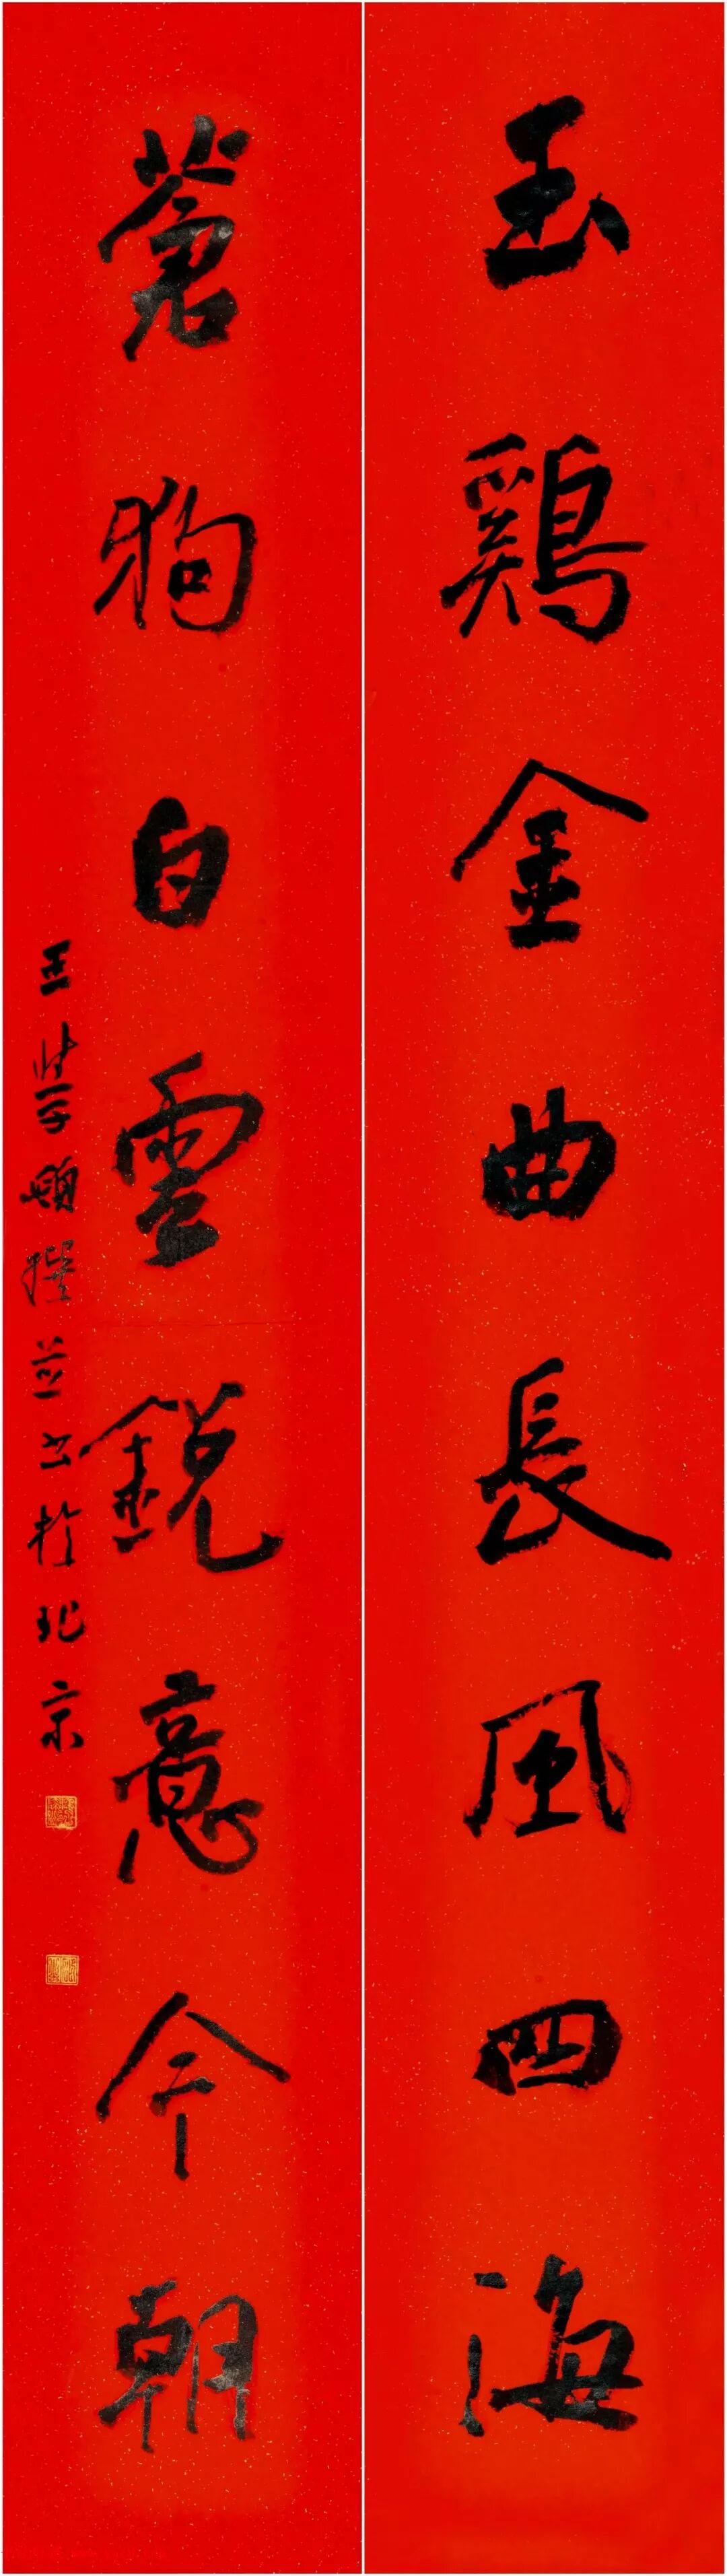 玉鷄金曲長風四海
蒼狗白雲銳意今朝
王學嶺撰並書於北京